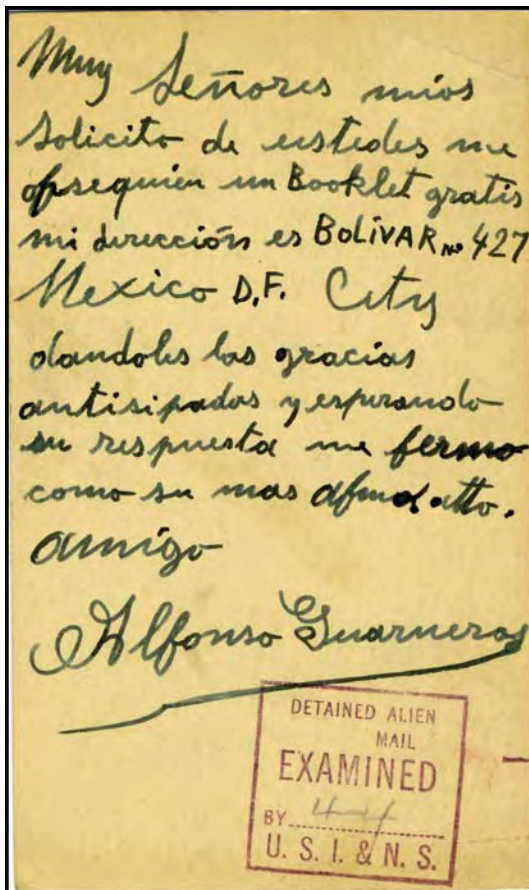 Muy Señores mios
Solicito de ustedes me
opsequien un Booklet gratis
mi dirección es BOLíVAR Nº 427
Mexico D.F. City
dandoles las gracias
antisipadas y esperando
su respuesta me fermo
como su mas afmo. atto.
amigo
Alfonso Guarneros
DETAINED ALIEN
MAIL
EXAMINED
BY 44
U. S. I. & N. S.